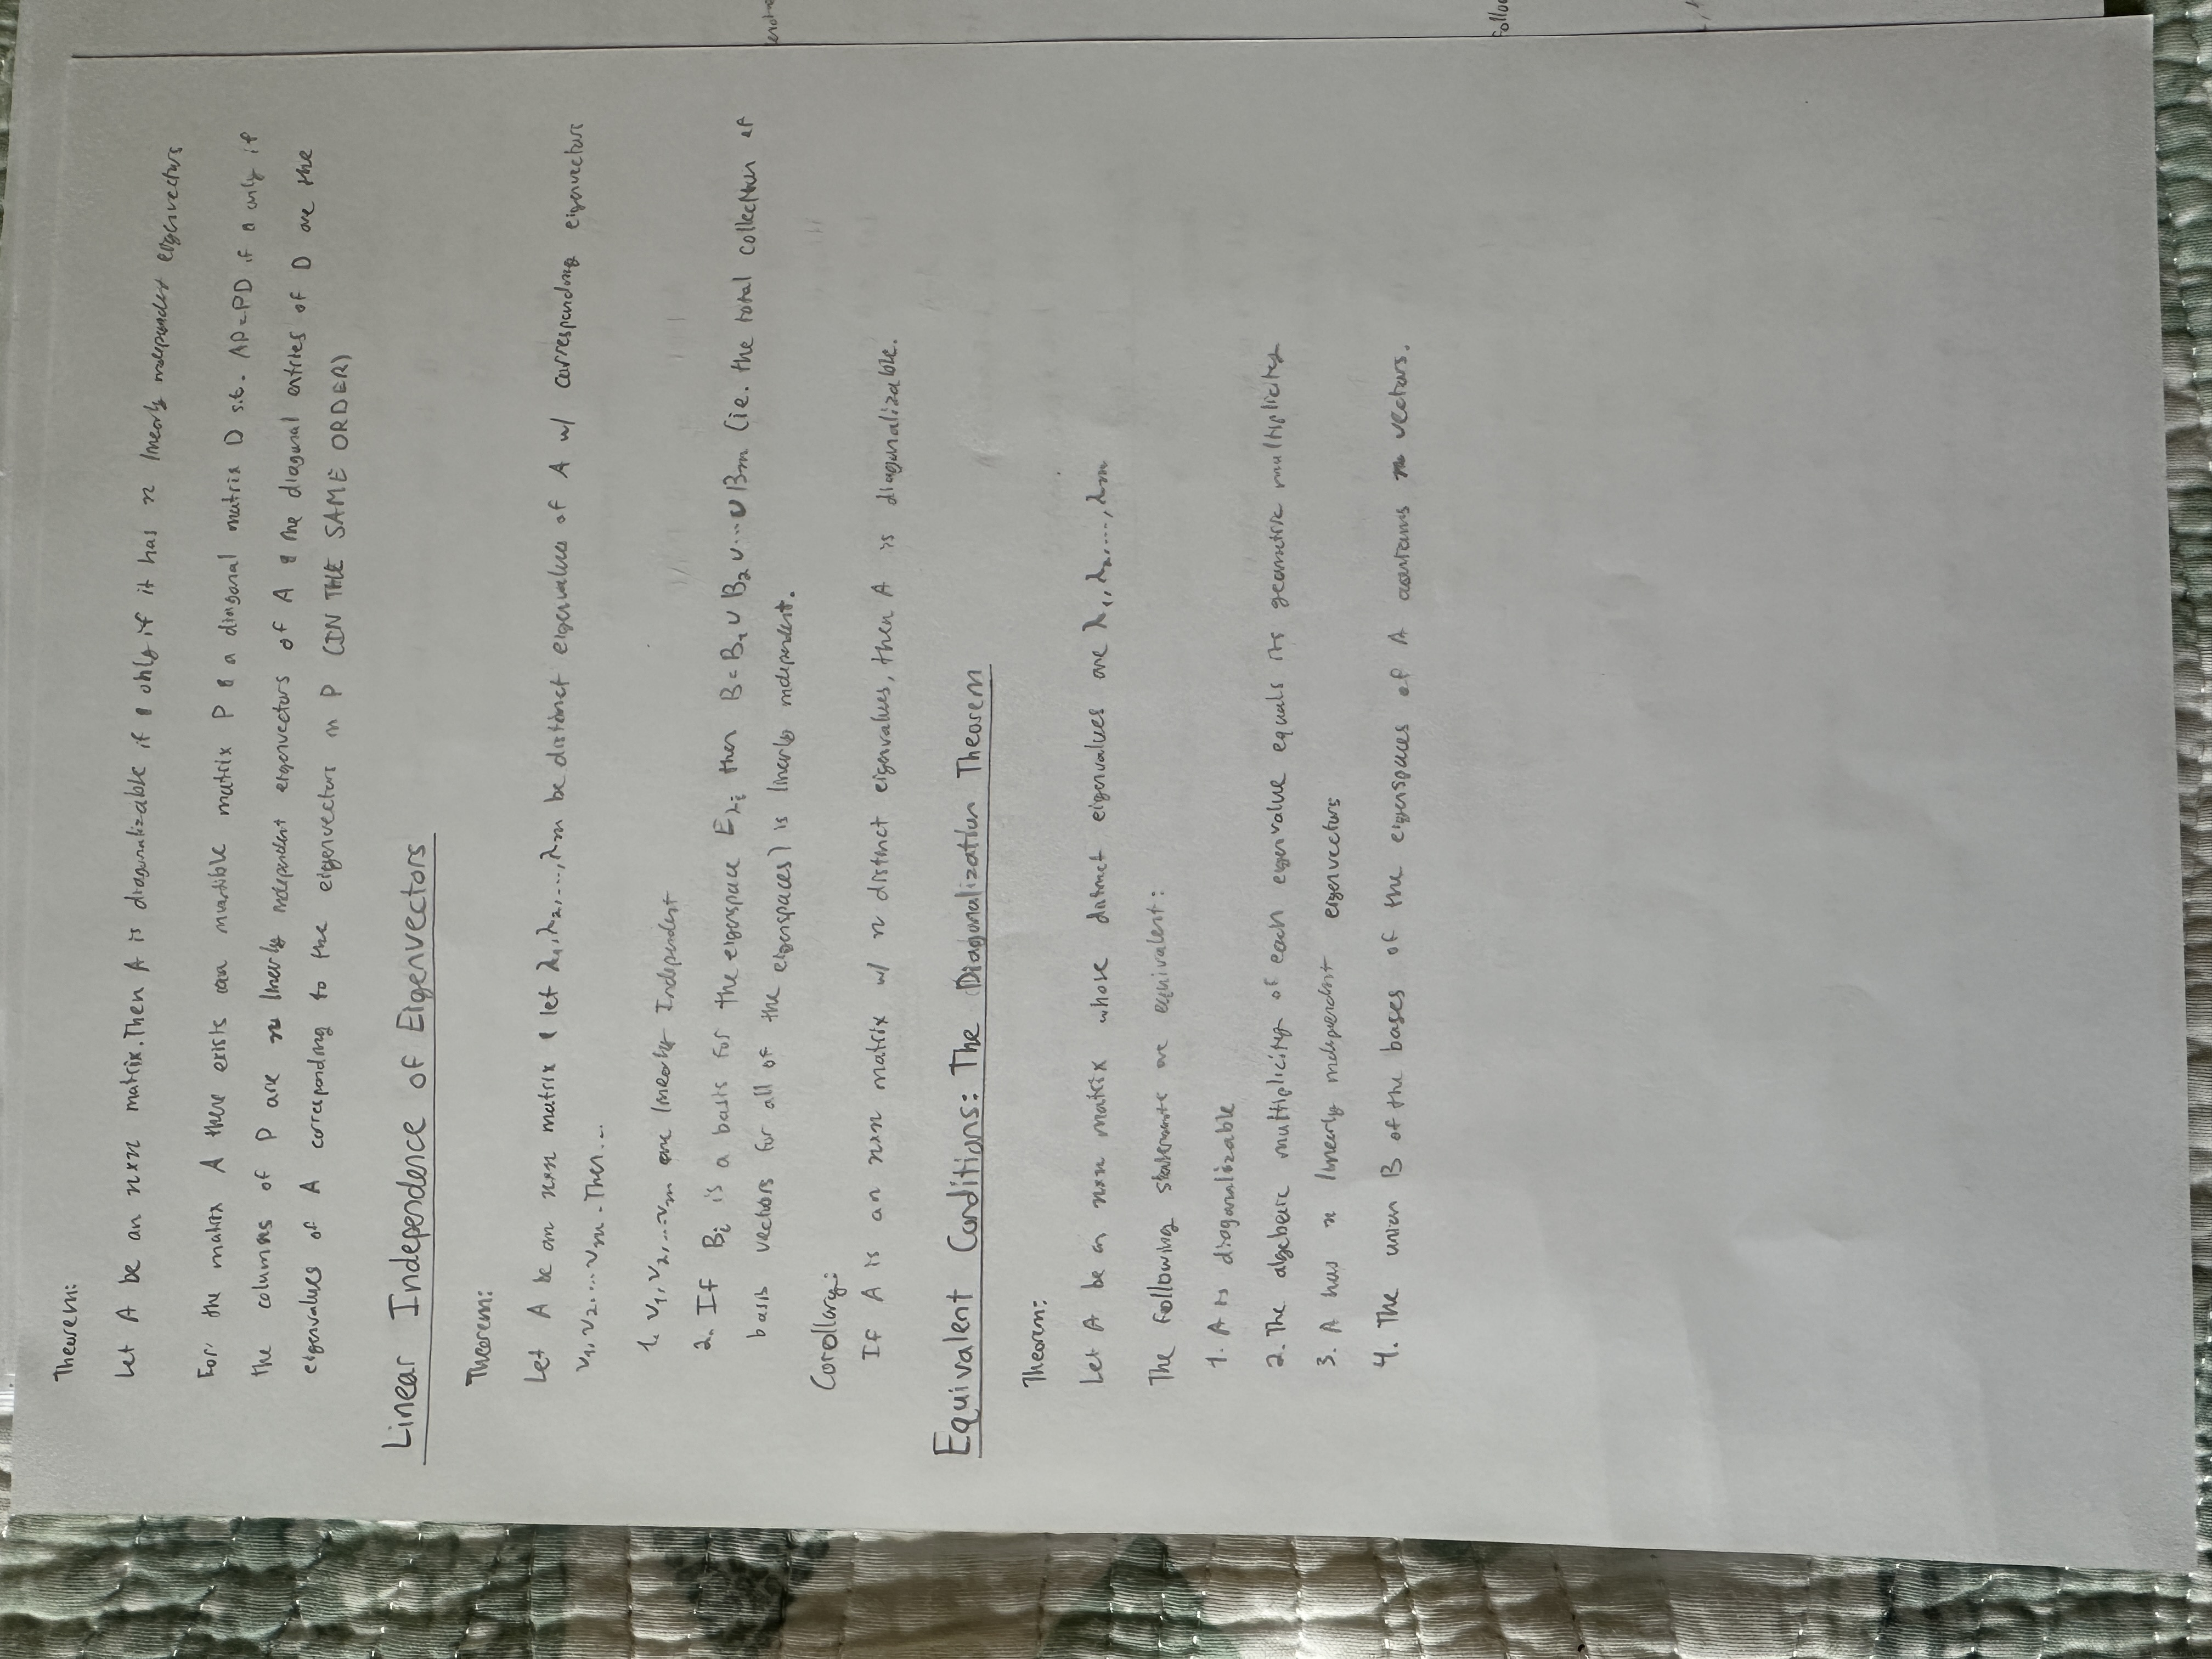 Theorem:
Let A be an n×n matrix. Then A is diagonalizable if & only if it has n linearly independent eigenvectors
For the matrix A there exists an invertible matrix P & a diagonal matrix D s.t. AP=PD if & only if
the columns of P are n linearly independent eigenvectors of A & the diagonal entries of D are the
eigenvalues of A corresponding to the eigenvectors in P (IN THE SAME ORDER)
Linear Independence of Eigenvectors
Theorem:
Let A be an n×n matrix & let λ₁,λ₂,...,λm be distinct eigenvalues of A w/ corresponding eigenvectors
v₁,v₂,...vm. Then...
1. v₁,v₂,...vm are linearly Independent
2. If Bi is a basis for the eigenspace Eλi then B=B₁∪B₂∪...∪Bm (ie. the total collection of
basis vectors for all of the eigenspaces) is linearly independent.
Corollary:
If A is an n×n matrix w/ n distinct eigenvalues, then A is diagonalizable.
Equivalent Conditions: The Diagonalization Theorem
Theorem:
Let A be an n×n matrix whose distinct eigenvalues are λ₁,λ₂,...,λm
The following statements are equivalent:
1. A is diagonalizable
2. The algebraic multiplicity of each eigenvalue equals its geometric multiplicity
3. A has n linearly independent eigenvectors
4. The union B of the bases of the eigenspaces of A contains n vectors.